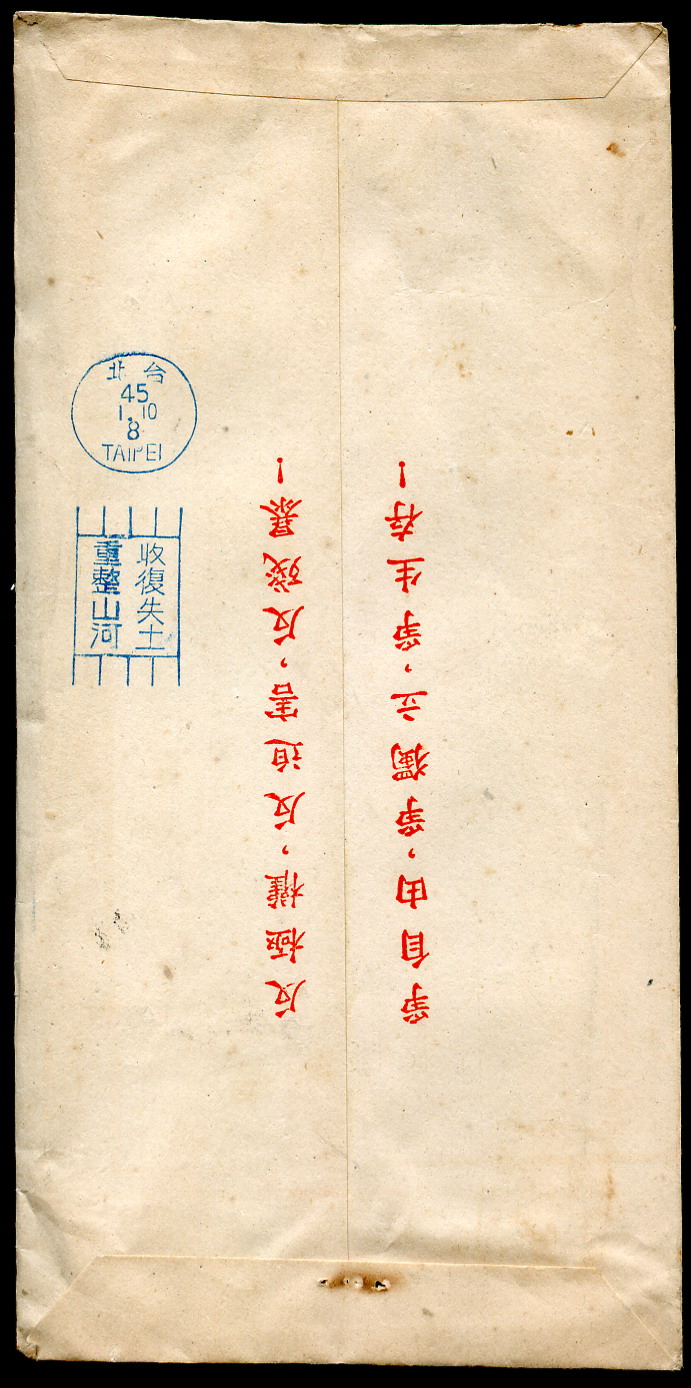 台北
45
1.10
8
TAIPEI
收復失土
重整山河
反極權,反迫害,反殘暴!
爭自由,爭獨立,爭生存!